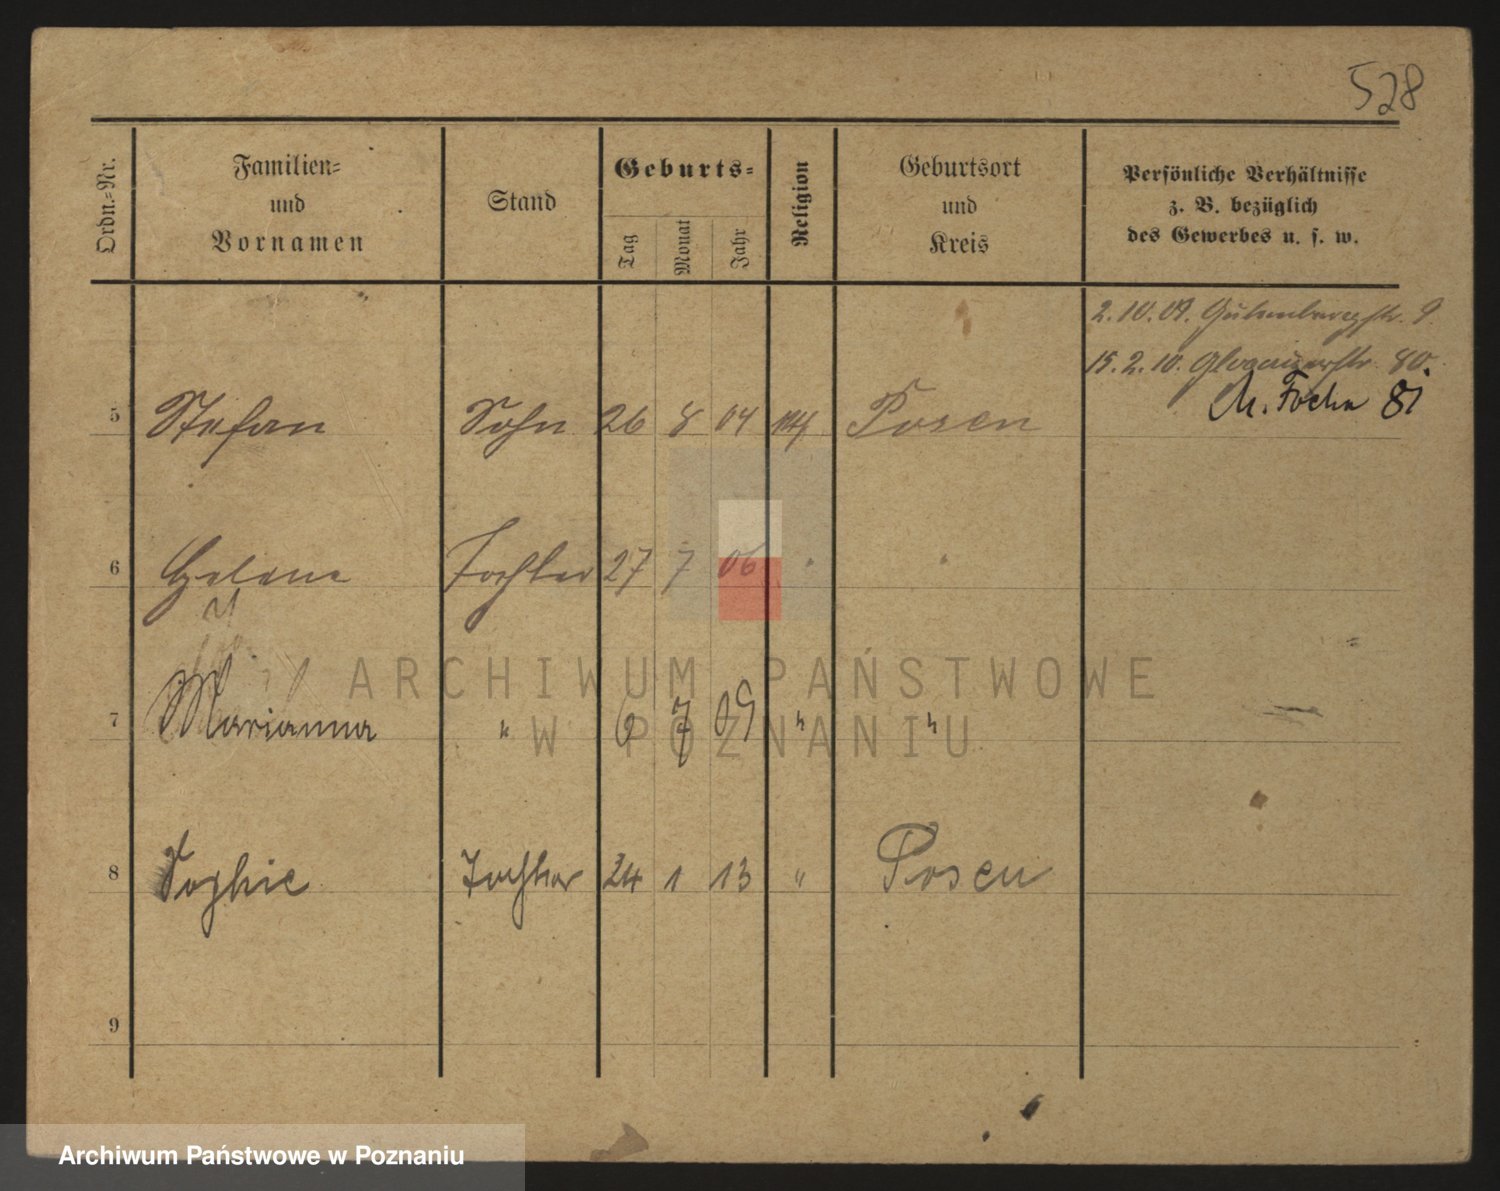 528
Ordn.-Nr.
Familien-
und
Vornamen
Stand
Geburts-
Tag
Monat
Jahr
Religion
Geburtsort
und
Kreis
Persönliche Verhältnisse
z. B. bezüglich
des Gewerbes u. s. w.
2. 10. 09. 9.
15. 2. 10. Glogauerstr. 80.
M. Focha 81
5 Stefan Sohn 26 8 04 Posen
6 Helene Tochter 27 7 06 " "
7 Marianna " 6 7 09 " "
8 Sophie Tochter 24 1 13 " Posen
9
ARCHIWUM PAŃSTWOWE
W POZNANIU
Archiwum Państwowe w Poznaniu